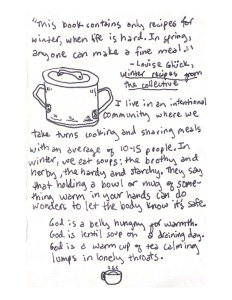 "This book contains only recipes for
winter, when life is hard. In spring,
anyone can make a fine meal."
- Louise Glück,
winter recipes from
the collective
I live in an intentional
community where we
take turns cooking and sharing meals
with an average of 10-15 people. In
winter, we eat soups: the brothy and
herby, the hardy and starchy. They say
that holding a bowl or mug of some-
thing warm in your hands can do
wonders to let the body know it's safe.
God is a belly hungry for warmth.
God is lentil soup on a draining day.
God is a warm cup of tea calming
lumps in lonely throats.